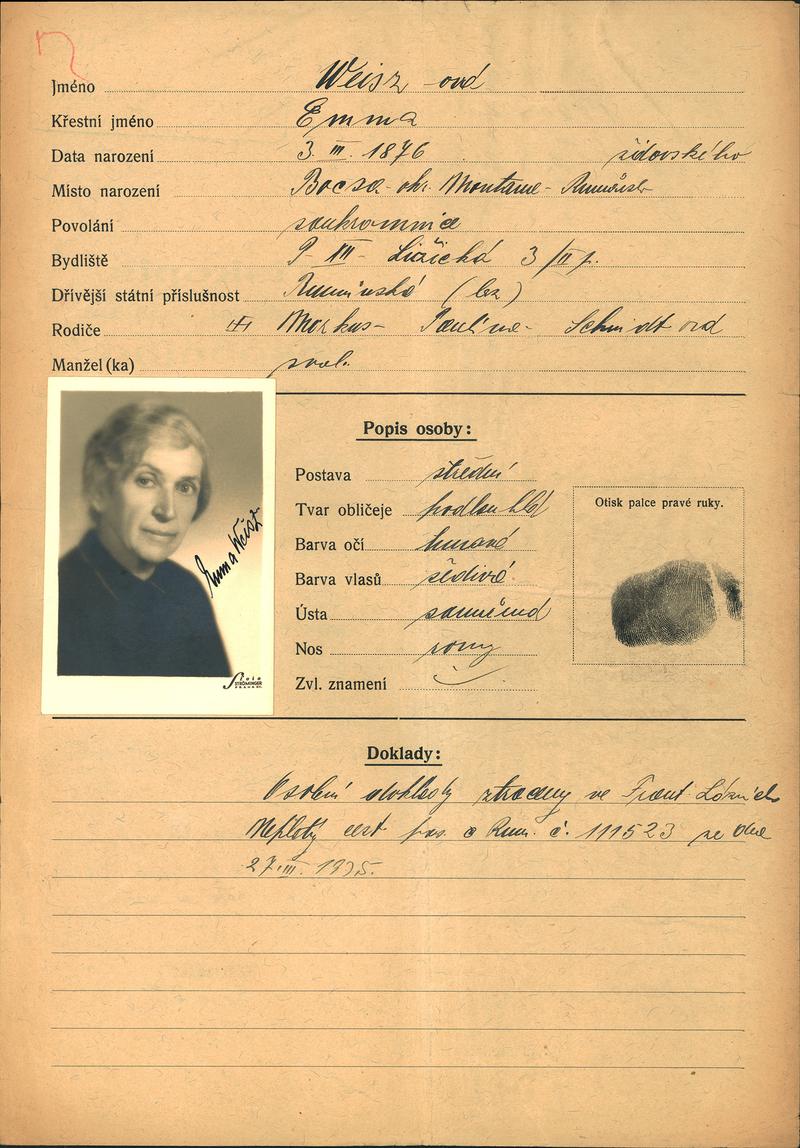 Jméno Weisz
Křestní jméno Emma
Data narození 3. III. 1876 židovského
Místo narození Bocsa - okr. Montane -
Povolání soukromnice
Bydliště P XII - 3/II p.
Dřívější státní příslušnost Rumunská (bez)
Rodiče Markus - Pauline - Schmidt
Manžel (ka) svob.
Popis osoby:
Postava střední
Tvar obličeje podlouhlý
Barva očí
Barva vlasů šedivé
Ústa souměrná
Nos rovný
Zvl. znamení
Otisk palce pravé ruky.
Emma Weisz
Foto
STRÖMINGER
Doklady:
Osobní doklady ztraceny ve Frant. Lázních
Neplatný cest. pas. č. 111523 ze dne
27. III. 1935.